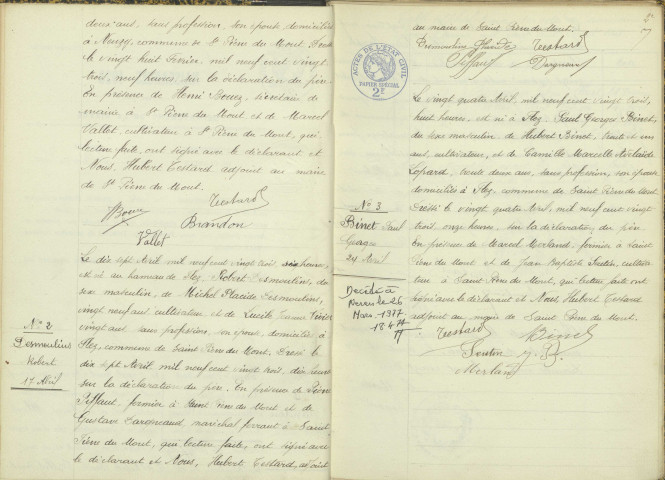 deux ans, sans profession, son épouse domiciliés
commune de St Pierre du Mont. Dressé
le vingt huit Février, mil neuf cent vingt
trois, neuf heures, sur la déclaration du père
En présence de Henri Bouez, secrétaire de
mairie à St Pierre du Mont et de Marcel
Vallet, cultivateur à St Pierre du Mont, qui,
lecture faite, ont signé avec le déclarant et
Nous, Hubert Testard adjoint au maire
de St Pierre du Mont.
Testard
Brandon
Vallet
No 2
Desmoulins
Robert
17 Avril
Le dix sept Avril, mil neuf cent vingt trois, heures,
est né au hameau de Robert Desmoulins, du
sexe masculin, de Michel Placide Desmoulins,
vingt neuf ans cultivateur et de Lucile
vingt ans, sans profession, son épouse, domiciliés à
commune de Saint Pierre du Mont. Dressé le
dix sept Avril, mil neuf cent vingt trois, dix heures
sur la déclaration du père. En présence de
fermier à Saint Pierre du Mont et de
Gustave maréchal ferrant à Saint
Pierre du Mont, qui, lecture faite, ont signé avec
le déclarant et Nous, Hubert Testard, adjoint
au maire de Saint Pierre du Mont.
Testard
ACTES DE L'ETAT CIVIL
PAPIER SPECIAL
2F
No 3
Binet Paul
Georges
24 Avril
Décédé à
le 26
Mars 1977
Le vingt quatre Avril, mil neuf cent vingt trois,
huit heures, est né à Paul Georges Binet,
du sexe masculin, de Hubert Binet, trente et un
ans, cultivateur, et de Camille Marcelle Adélaïde
trente deux ans, sans profession, son épouse
domiciliés à commune de Saint Pierre du Mont.
Dressé le vingt quatre Avril, mil neuf cent vingt
trois, onze heures, sur la déclaration du père
En présence de Marcel Merland, fermier à Saint
Pierre du Mont et de Jean Baptiste cultiva
teur à Saint Pierre du Mont, qui, lecture faite ont
signé avec le déclarant et Nous Hubert Testard
adjoint au maire de Saint Pierre du Mont.
Testard Binet
Merland